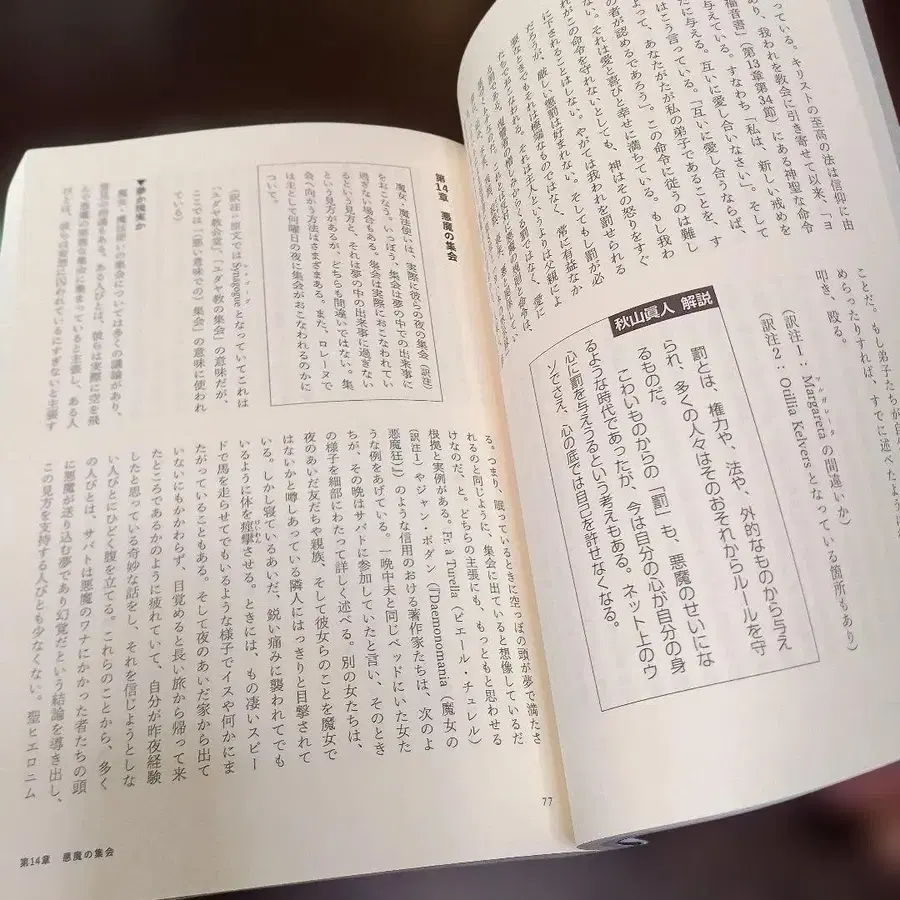 っている。キリストの至高の法は信仰に由
あり、我われを教会に引き寄せて以来、「ヨ
福音書」(第13章第34節)にある神聖な命令
与えている。すなわち「私は、新しい戒めを
たに与える。互いに愛し合いなさい」。そして
はこう言っている。「互いに愛し合うならば、
よって、あなたがたが私の弟子であることを、す
の者が認めるであろう」。この命令に従うのは難し
ない。それは愛と喜びと幸せに満ちている。もし我わ
れがこの命令を守れないとしても、神はその怒りをすぐ
に下されることはしない。やがては我われを罰せられる
だろうが、厳しい懲罰は好まれない。そしてもし罰が必
要なときでもそれは極端なものではなく、常に有益なか
たちでおこなわれる。それは主人というよりは父親によ
ことだ。もし弟子たちが自
めらったりすれば、すでに述べたよう
叩き、殴る。
(訳注1:Margaretaの間違いか)
マルガレータ
(訳注2:Otillia Kelversとなっている箇所もあり)
秋山眞人 解説
罰とは、権力や、法や、外的なものから与え
られ、多くの人々はそのおそれからルールを守
るものだ。
こわいものからの「罰」も、悪魔のせいにな
るような時代であったが、今は自分の心が自分の身
心に罰を与えうるという考えもある。ネット上のウ
ソでさえ、心の底では自己を許せなくなる。
第14章 悪魔の集会
魔女・魔法使いは、実際に彼らの夜の集会(訳注)
をおこなう。いっぽう、集会は夢の中での出来事に
過ぎない場合もある。集会は実際におこなわれてい
るという見方と、それは夢の中の出来事に過ぎない
という見方があるが、どちらも間違いではない。集
会へ向かう方法はさまざまある。また、ロレーヌで
は主として何曜日の夜に集会がおこなわれるのかに
ついて。
(訳注:原文ではSynagogueとなっていてこれは
シナゴーグ
「ユダヤ教会堂」、「ユダヤ教の集会」の意味だが、
ここでは「(悪い意味での)集会」の意味に使われ
ている)
▼夢か現実か
魔女・魔法使いの集会については多くの議論があり、
る。つまり、眠っているときに空っぽの頭が夢で満たさ
れるのと同じように、集会に出ていると想像しているだ
けなのだ、と。どちらの主張にも、もっともと思わせる
根拠と実例がある。Fr. a Turella(ピエール・チュレル)
(訳注1)やジャン・ボダン(『Daemonomania(魔女の
悪魔狂)』)のような信用のおける著作家たちは、次のよ
うな例をあげている。一晩中夫と同じベッドにいた女た
ちが、その晩はサバトに参加していたと言い、そのとき
の様子を細部にわたって詳しく述べる。別の女たちは、
夜のあいだ友だちや親族、そして彼女らのことを魔女で
はないかと噂しあっている隣人にはっきりと目撃されて
いる。しかし寝ているあいだ、鋭い痛みに襲われてでも
いるように体を痙攣させる。ときには、もの凄いスピー
けいれん
ドで馬を走らせてでもいるような様子でイスや何かにま
たがっていることもある。そして夜のあいだ家から出て
いないにもかかわらず、目覚めると長い旅から帰って来
たところであるかのように疲れていて、自分が昨夜経験
したと思っている奇妙な話をし、それを信じようとしな
い人びとにひどく腹を立てる。これらのことから、多く
の人びとは、サバトは悪魔のワナにかかった者たちの頭
に悪魔が送り込む夢であり幻覚だという結論を導き出し、
この見方を支持する人びとも少なくない。聖ヒエロニム
77
第14章 悪魔の集会